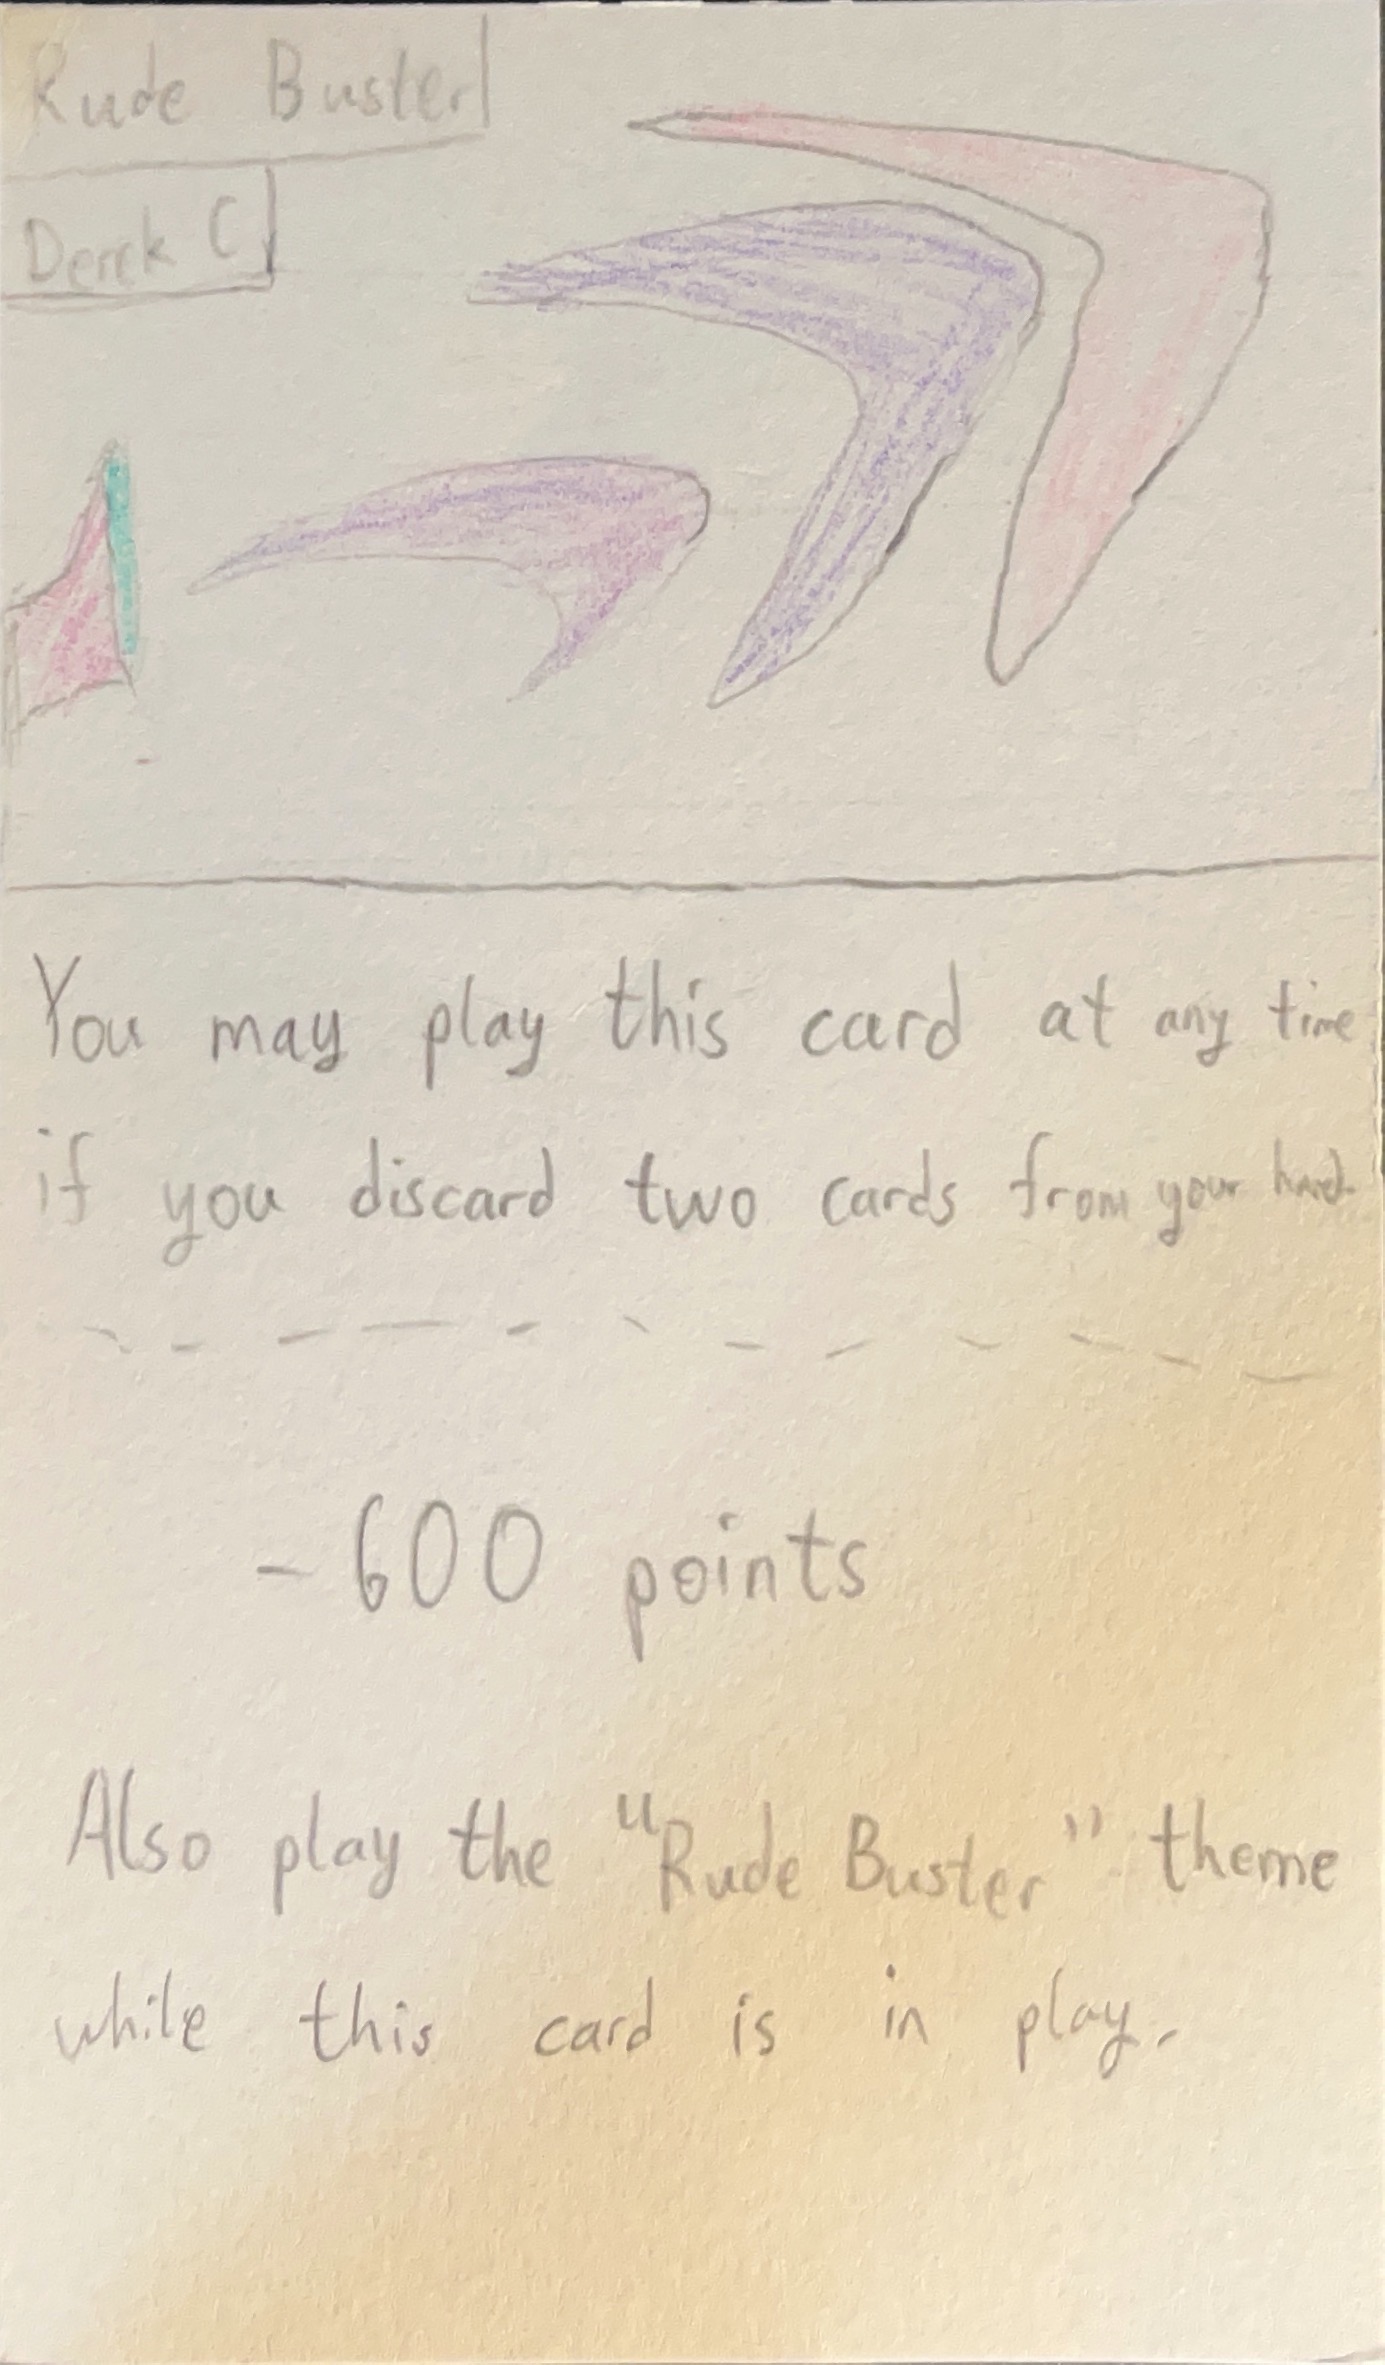 Rude Buster
Derek C
You may play this card at any time
if you discard two cards from your hand.
- 600 points
Also play the "Rude Buster" theme
while this card is in play.